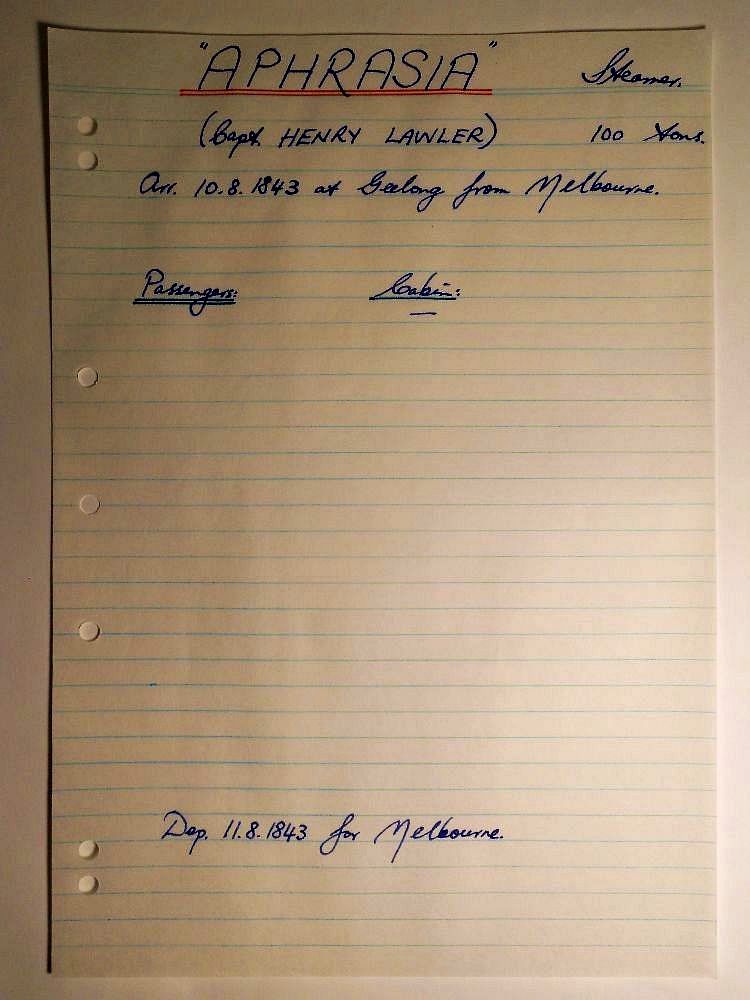 "APHRASIA" Steamer.
(Capt. HENRY LAWLER) 100 tons.
Arr. 10.8.1843 at Geelong from Melbourne.
Passengers: Cabin:
—
Dep. 11.8.1843 for Melbourne.